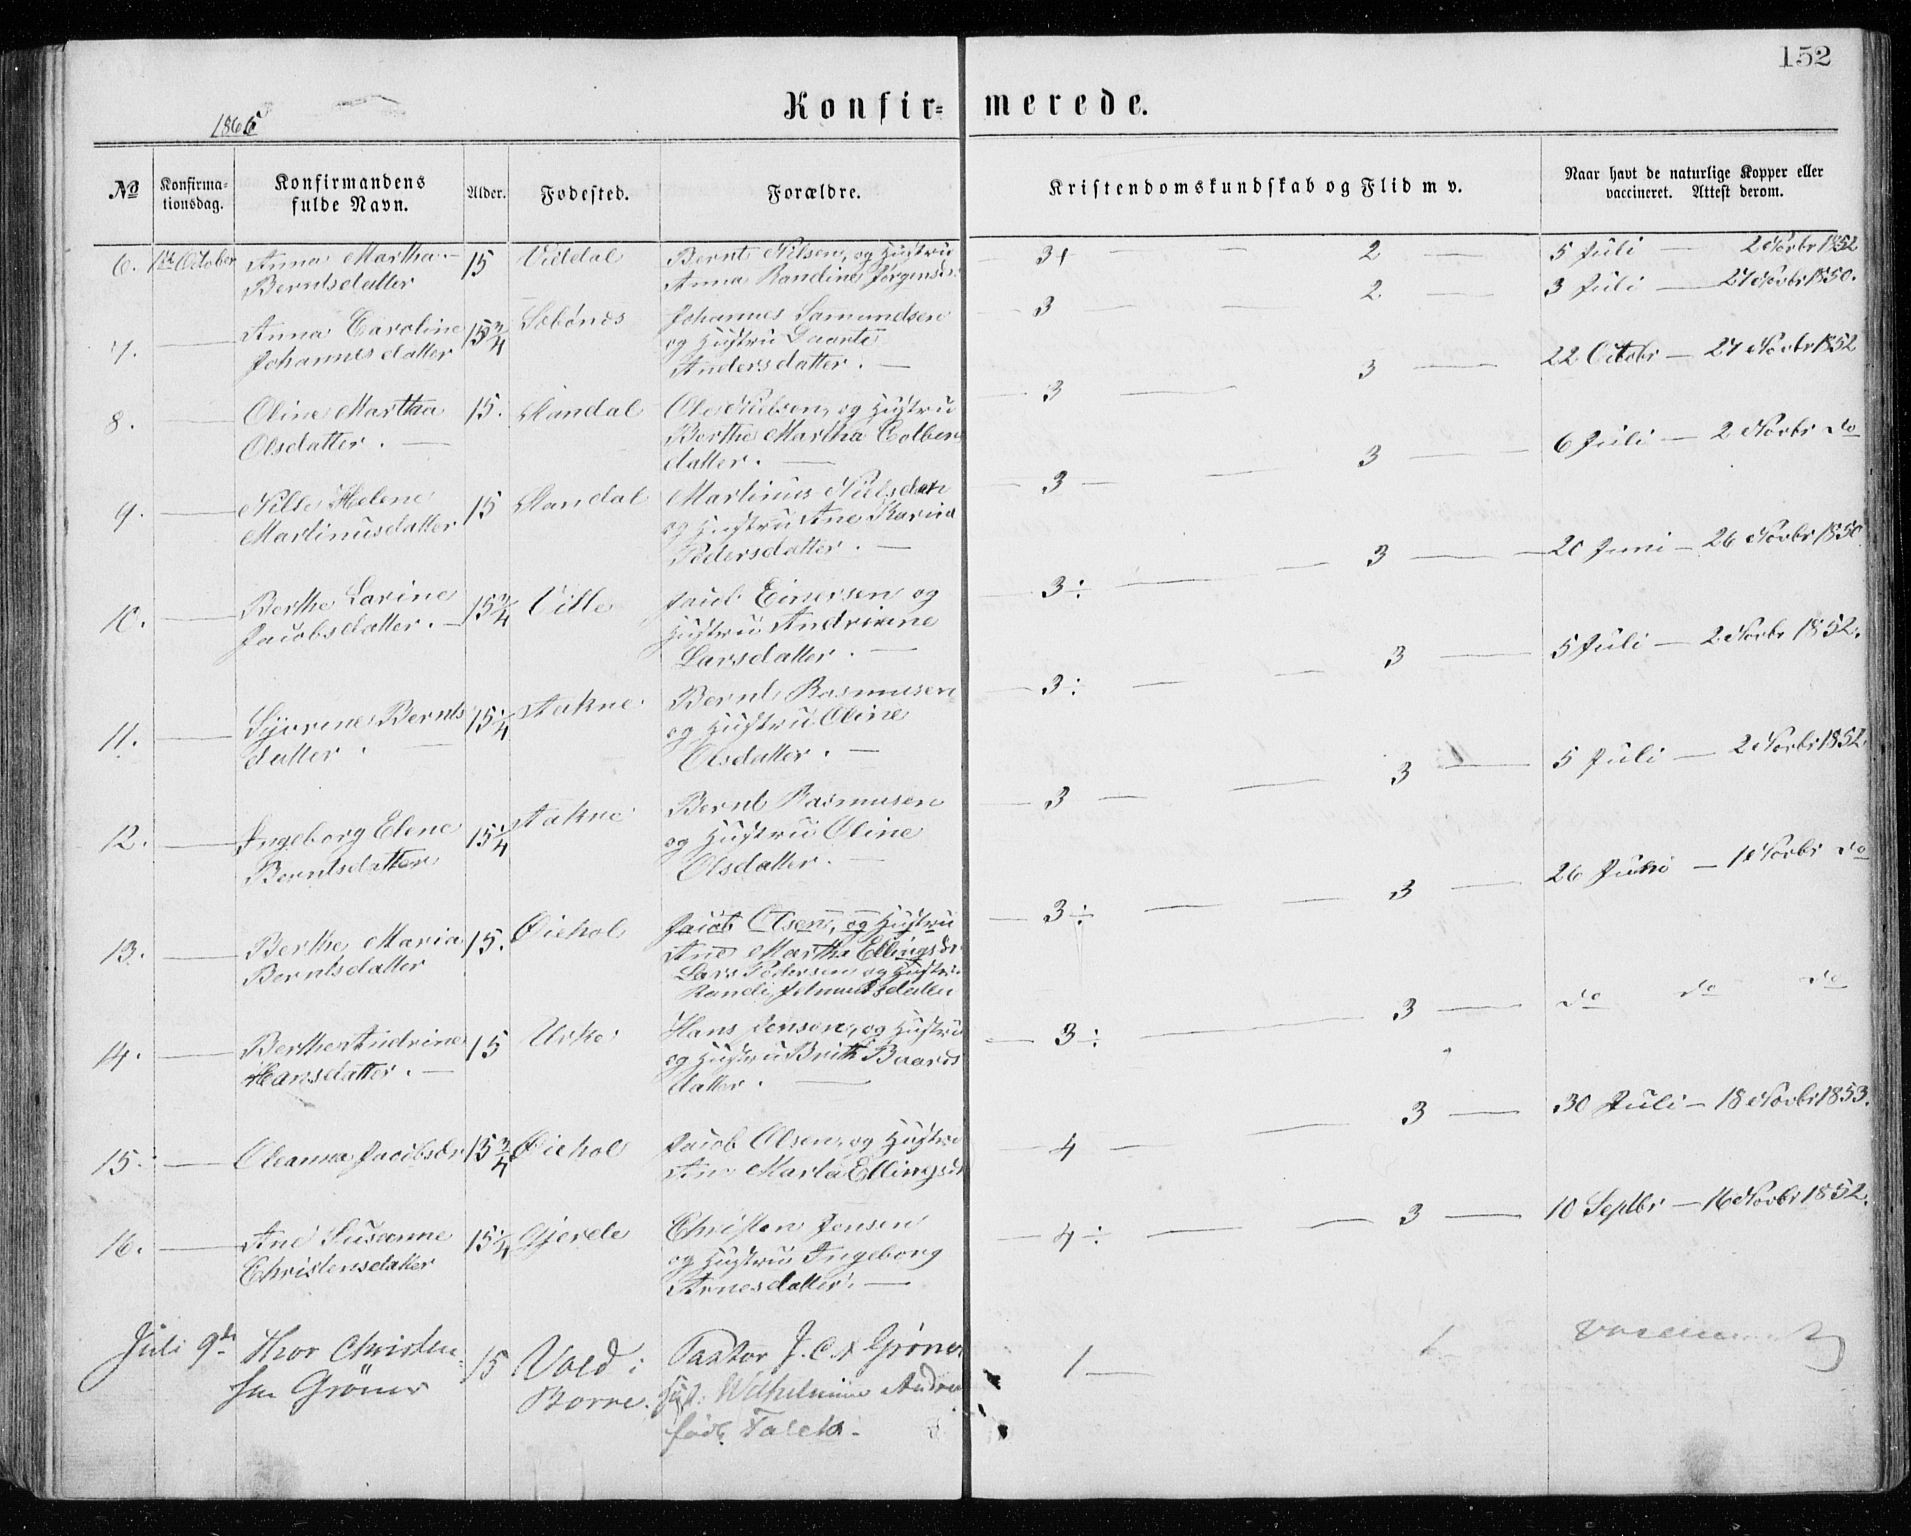 152
Konfir= merede.
1866
No Konfirma-tionsdag. Konfirmandens fulde Navn. Alder. Fodested. Forældre. Kristendomskundskab og Flid m v. Naar havt de naturlige Kopper eller vaccineret. Attest derom.
6. 1ste October Anna Martha 15 Viddal Bernt Nilsen, og Hustru 3+ — 2 — 5 Juli — 2 Novbr 1852
Berntsdatter Anna Randine Jørgensdr
7. — Anna Caroline 15 3/4 Sæbønes Johannes Samundsen 3 — 2 — 3 Juli — 27 Novbr 1850.
Johannesdatter og Hustru Daarte
Andersdatter. —
8. — Oline Martha 15. Standal Ole Nilsen, og Hustru 3 — 3 — 22 Octobr — 27 Novbr 1852
Olsdatter. — Berthe Martha Colben
datter. —
9. — Nille Helene 15 Standal Martinus Nielsden 3 — 3 — 6 Juli — 2 Novbr do
Martinusdatter og Hustru Ane Karina
Pedersdatter. —
10. — Berthe Larine 15 3/4 Ville Jacob Einersen og 3÷ — 3 — 20 Juni — 26 Novbr 1850
Jacobsdatter. — Hustru Andriane
Larsdatter. —
11. — Syvrine Bernts 15 1/4 Aakne Bernt Rasmusen 3÷ — 3 — 5 Juli — 2 Novbr 1852.
datter. — og Hustru Oline
Olsdatter. —
12. — Ingeborg Elene 15 1/4 Aakne Bernt Rasmusen 3 — 3 — 5 Juli — 2 Novbr 1852
Berntsdatter og Hustru Oline
Olsdatter. —
13. — Berthe Maria 15. Øiehol Jacob Olsen, og Hustru 3÷ — 3 — 26 Juni — 1 Novbr do
Berntsdatter Ane Martha Ellingsdr
Lars Pedersen og Hustru
Randi
14. — Berthe Andrine 15 Urke Hans Jensen, og Hustru 3÷ — 3 — do do do
Hansdatter. — og Hustru Brith Baards
datter. —
15. — Oleanna Jacobsdr 15 3/4 Øiehol Jacob Olsen, og Hustru 4 — 3 — 30 Juli — 18 Novbr 1853.
Ane Marta Ellingsdr
16. — Ane Susanne 15 1/4 Gjerde Christen Jensen 4÷ — 3 — 10 Septbr — 16 Novbr 1852.
Christensdatter og Hustru Ingeborg
Arnesdatter. —
Juli 9de Thor Christen= 15 Vold i Pastor J. C. A Grøner 1 — 1
sen Grøner Borre. Hust. Wilhelmine Andrea
født Falck.